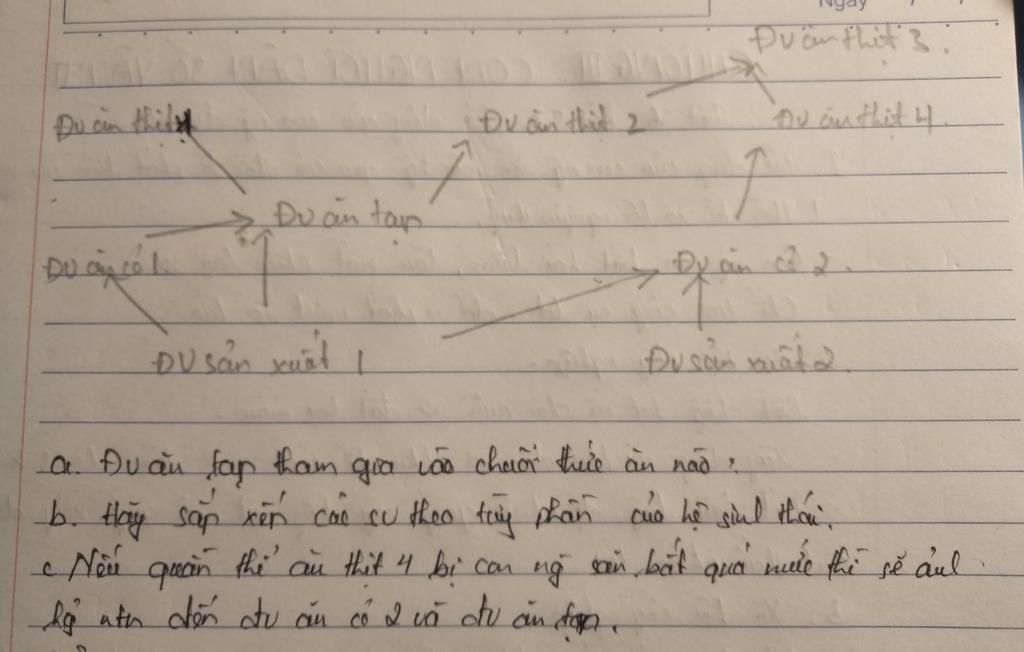 Ngày
Đv ăn thịt 3.
Đv ăn thịt
Đv ăn thịt 2
Đv ăn thịt 4.
Đv ăn tạp
Đv ăn cỏ 1.
Đv ăn cỏ 2.
Đv sản xuất 1
Đv sản xuất 2.
a. Đv ăn tạp tham gia vào chuỗi thức ăn nào?
b. Hãy sắp xếp các sv theo từng phần của hệ sinh thái.
c. Nếu quần thể ăn thịt 4 bị con ng săn bắt quá mức thì sẽ ảnh
hg ntn đến đv ăn cỏ 2 và đv ăn tạp.